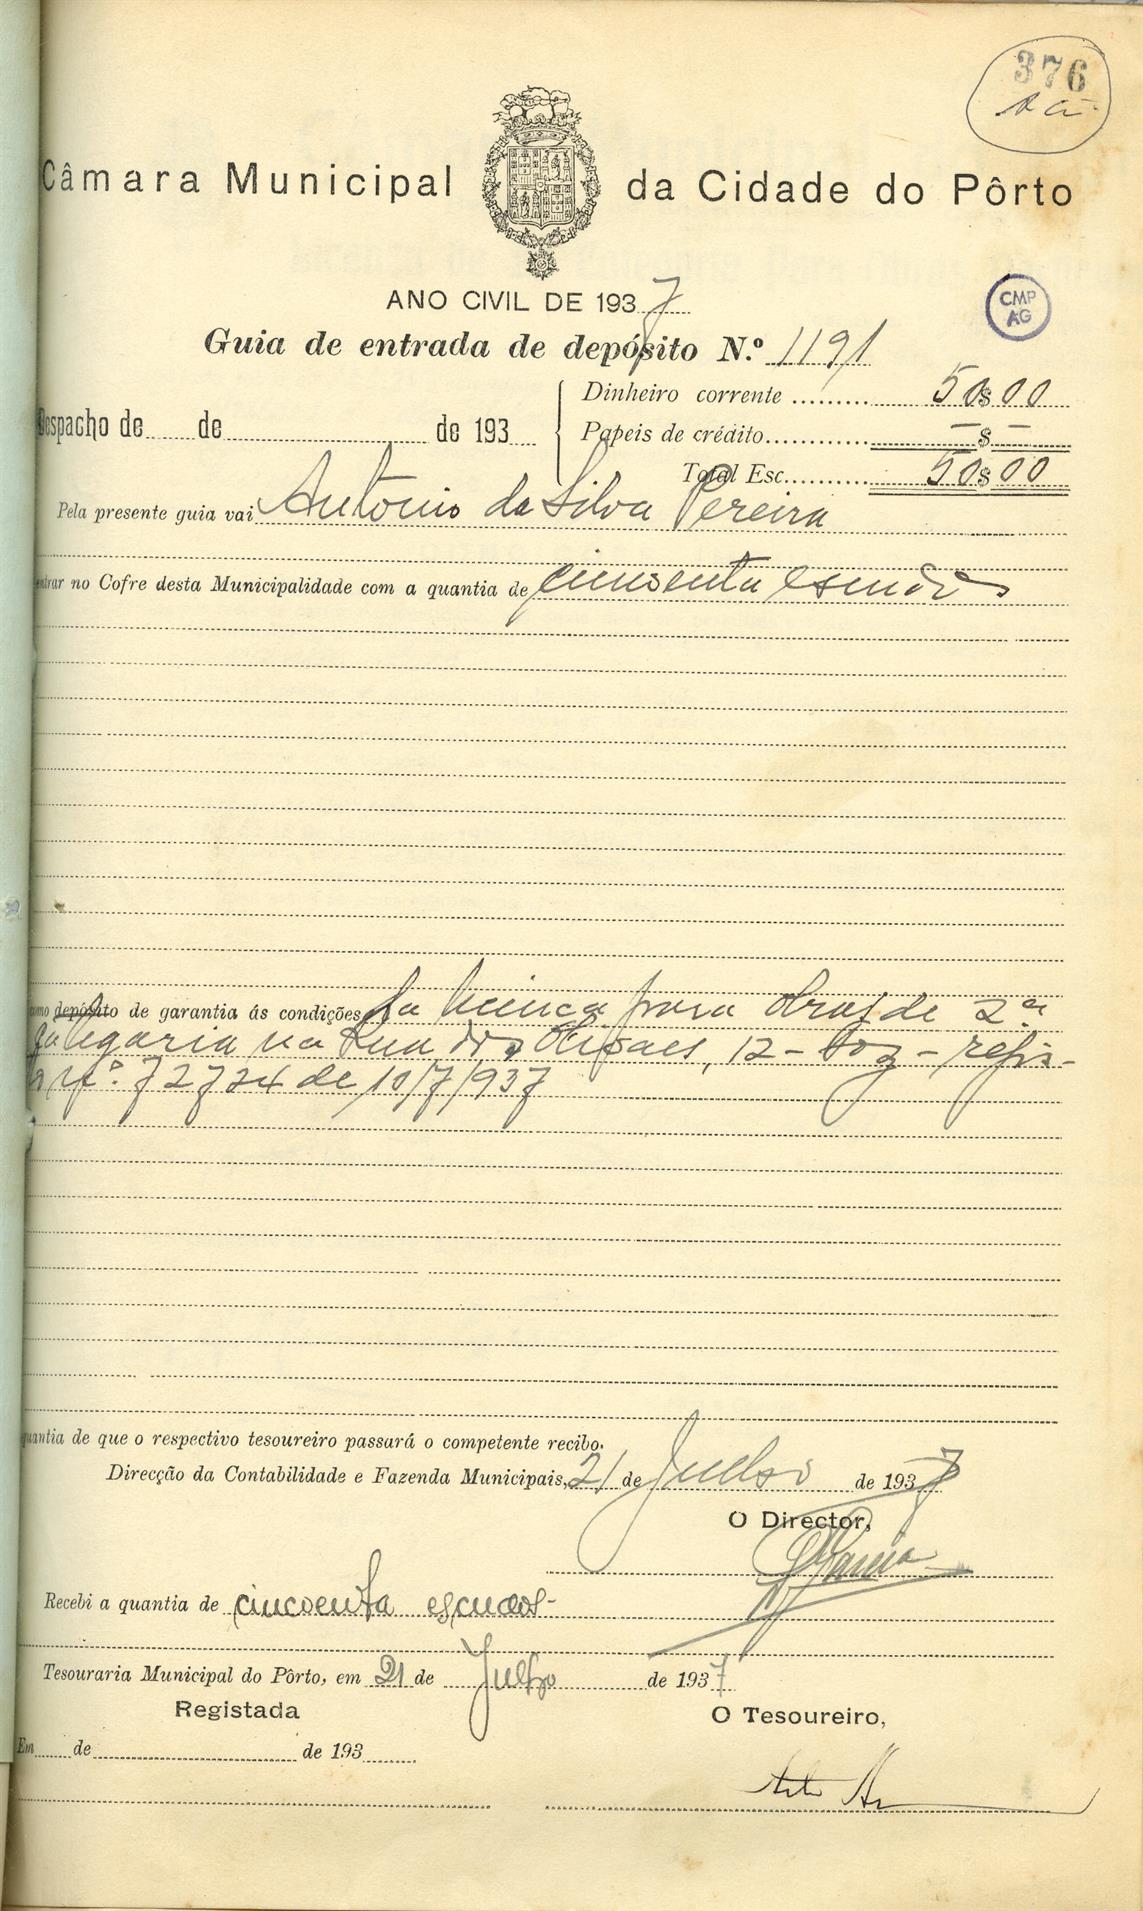 376
Câmara Municipal da Cidade do Pôrto
ANO CIVIL DE 1937
CMP
AG
Guia de entrada de depósito N.º 1191
Dinheiro corrente ......... 50$00
Despacho de de de 193
Papeis de crédito ............ -$-
Total Esc. .......... 50$00
Pela presente guia vai Antonio da Silva Pereira
entrar no Cofre desta Municipalidade com a quantia de cincoenta escudos
como depósito de garantia ás condições da licença para obras de 2.ª
categoria na Rua dos 12 - Foz - regis-
to n.º 72724 de 10/7/937
quantia de que o respectivo tesoureiro passará o competente recibo.
Direcção da Contabilidade e Fazenda Municipais, 21 de Julho de 1937
O Director,
Recebi a quantia de cincoenta escudos-
Tesouraria Municipal do Pôrto, em 21 de Julho de 1937
Registada
O Tesoureiro,
Em de de 193